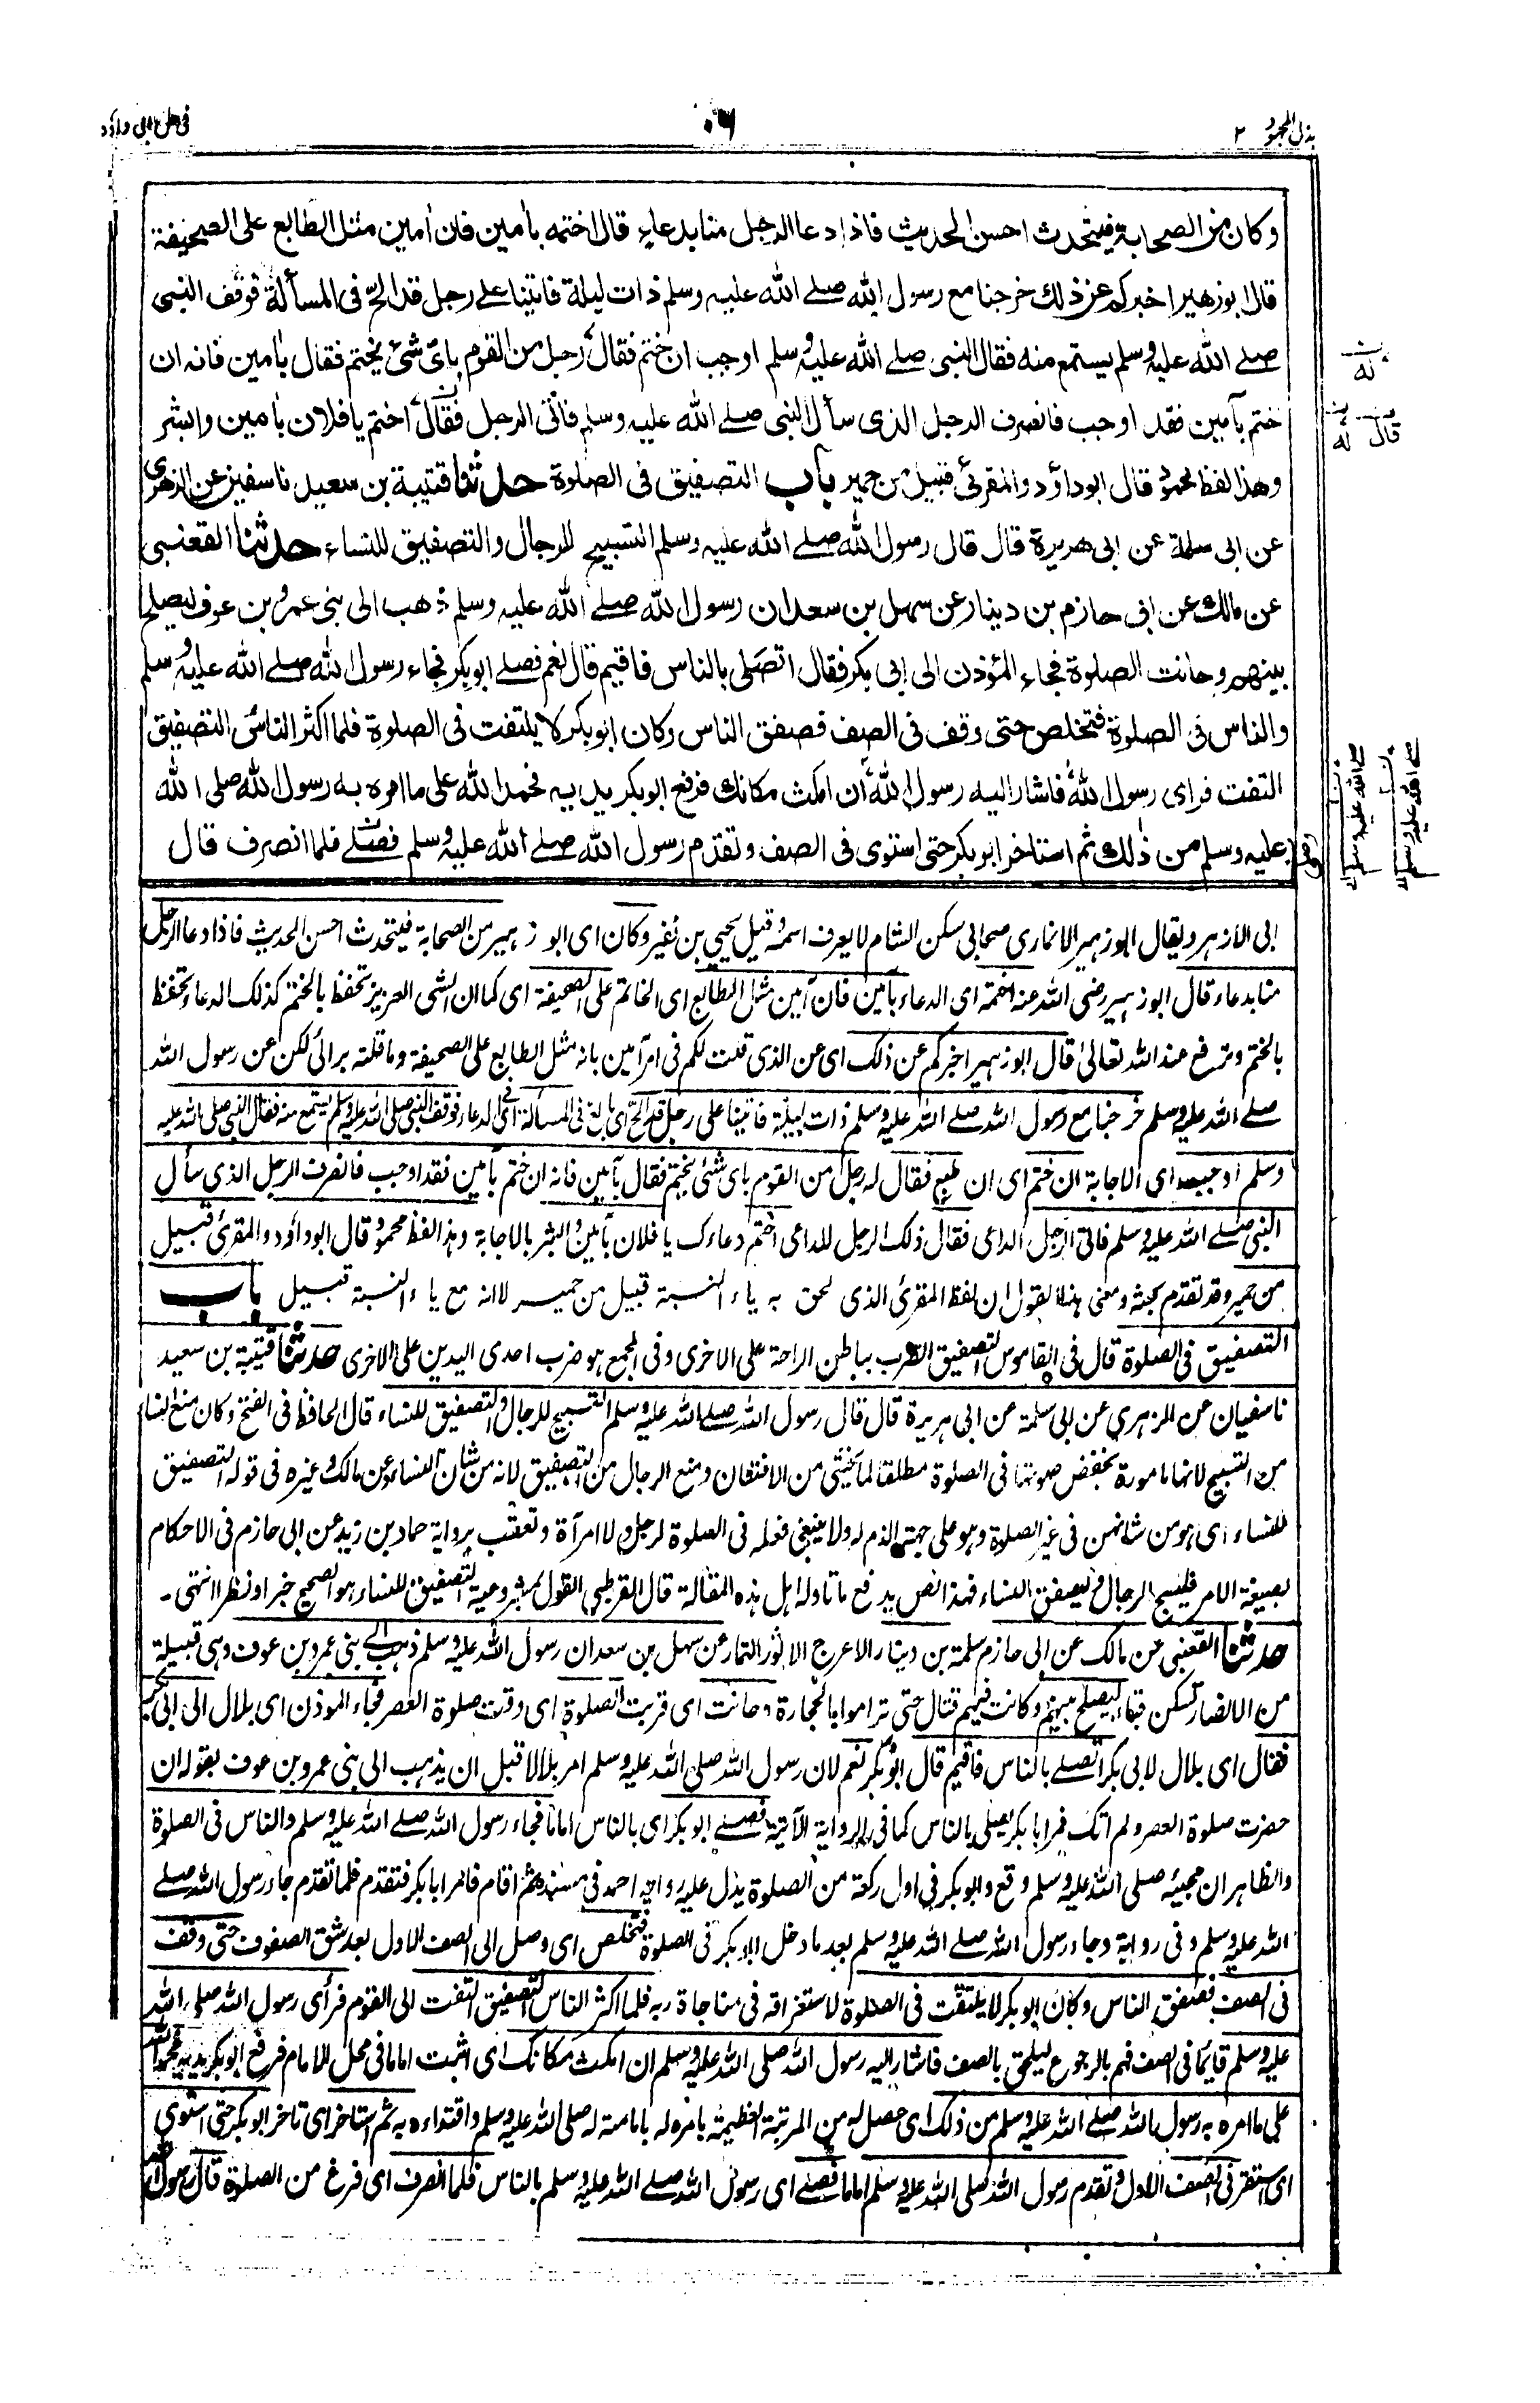 بذل المجهود ٢
٠٦
في حل ابى داؤد
وكان من الصحابة فيتحدث احسن الحديث فاذا دعا الرجل منا بدعاء قال اختمه بأمين فان أمين مثل الطابع على الصحيفة
قال ابو زهير اخبركم عن ذلك خرجنا مع رسول الله صلے الله عليه وسلم ذات ليلة فاتينا على رجل قد الحّ فى المسألة فوقف النبى
صلے الله عليه وسلم يستمع منه فقال النبى صلے الله عليه وسلم اوجب ان ختم فقال رجل من القوم بأىّ شئ يختم فقال بأمين فانه ان
ختم بآمين فقد اوجب فانصرف الرجل الذى سأل النبى صلے الله عليه وسلم فاتى الرجل فقال اختم يا فلان بأمين وابشر
وهذا لفظ محمود قال ابو داؤد والمقرئى قبيل من حمير باب التصفيق فى الصلوة حدثنا قتيبة بن سعيد نا سفين عن الزهرى
عن ابى سلمة عن ابى هريرة قال قال رسول الله صلے الله عليه وسلم التسبيح للرجال والتصفيق للنساء حدثنا القعنبى
عن مالك عن ابى حازم بن دينار عن سهل بن سعد ان رسول الله صلے الله عليه وسلم ذهب الى بنى عمرو بن عوف ليصلح
بينهم وحانت الصلوة فجاء المؤذن الى ابى بكر فقال اتصلى بالناس فاقيم قال نعم فصلے ابو بكر فجاء رسول الله صلے الله عليه وسلم
والناس فى الصلوة فتخلص حتى وقف فى الصف فصفق الناس وكان ابو بكر لا يلتفت فى الصلوة فلما اكثر الناس التصفيق
التفت فراى رسول الله فاشار اليه رسول الله ان امكث مكانك فرفع ابو بكر يديه فحمد الله على ما امره به رسول الله صلى الله
عليه وسلم من ذلك ثم استاخر ابو بكر حتى استوى فى الصف وتقدم رسول الله صلے الله عليه وسلم فصلے فلما انصرف قال
له
قال له
صلے الله عليه وسلم
صلے الله عليه وسلم
ابى الازهر ويقال ابو زهير الانمارى صحابى سكن الشام لا يعرف اسمه وقيل يحيى بن نفير وكان اى ابو زهير من الصحابة فيتحدث احسن الحديث فاذا دعا الرجل
منا بدعاء قال ابو زهير رضى الله عنه اختمه اى الدعاء بآمين فان آمين مثل الطابع اى الخاتم على الصحيفة اى كما ان الشى العزيز تحفظ بالختم كذلك الدعاء تحفظ
بالختم وترفع عند الله تعالىٰ قال ابو زهير اخبركم عن ذلك اى عن الذى قلت لكم فى امر آمين بانه مثل الطابع على الصحيفة وما قلته برائى لكن عن رسول الله
صلے الله عليه وسلم خرجنا مع رسول الله صلے الله عليه وسلم ذات ليلة فاتينا على رجل قد الحّ اى بالغ فى المسألة اى فى الدعاء فوقف النبى صلى الله عليه وسلم يستمع منه فقال النبى صلى الله عليه
وسلم اوجب اى الاجابة ان ختم اى ان طبع فقال له رجل من القوم باى شئى يختم فقال بآمين فانه ان ختم بآمين فقد اوجب فانصرف الرجل الذى سأل
النبى صلے الله عليه وسلم فاتى الرجل الداعى فقال ذلك الرجل للداعى اختم دعاءك يا فلان بآمين وابشر بالاجابة وهذا لفظ محمود قال ابو داؤد والمقرئى قبيل
من حمير وقد تقدم بحثه ومعنى هذا القول ان لفظ المقرئى الذى لحق به ياء النسبة قبيل من حمير لا انه مع ياء النسبة قبيل باب
التصفيق فى الصلوة قال فى القاموس التصفيق الضرب بباطن الراحة على الاخرى وفى المجمع هو ضرب احدى اليدين على الاخرى حدثنا قتيبة بن سعيد
نا سفيان عن الزهري عن ابى سلمة عن ابى هريرة قال قال رسول الله صلے الله عليه وسلم التسبيح للرجال والتصفيق للنساء قال الحافظ فى الفتح وكان منع النساء
من التسبيح لانها مامورة بخفض صوتها فى الصلوة مطلقا لما يخشى من الافتتان ومنع الرجال من التصفيق لانه من شان النساء وعن مالك وغيره فى قوله التصفيق
للنساء اى هو من شانهن فى غير الصلوة وهو على جهة الذم له ولا ينبغى فعله فى الصلوة لرجل ولا امرآة وتعقب برواية حماد بن زيد عن ابى حازم فى الاحكام
بصيغة الامر فليسبح الرجال وليصفق النساء فهذا نص يدفع ما تاوله اهل هذه المقالة قال القرطبى القول بمشروعية التصفيق للنساء هو الصحيح خبرا ونظرا انتهى۔
حدثنا القعنبى عن مالك عن ابى حازم سلمة بن دينار الاعرج الاثور التمار عن سهل بن سعد ان رسول الله عليه وسلم ذهب الے بنى عمرو بن عوف وهى قبيلة
من الانصار تسكن قباء ليصلح بينهم وكانت فيهم قتال حتى تراموا بالحجارة وحانت اى قربت الصلوة اى وقت صلوة العصر فجاء الموذن اى بلال الى ابى بكر
فقال اى بلال لابى بكر اتصلے بالناس فاقيم قال ابو بكر نعم لان رسول الله صلى الله عليه وسلم امر بلالا قبل ان يذهب الى بنى عمرو بن عوف بقوله ان
حضرت صلوة العصر ولم اتك فمر ابا بكر يصلى بالناس كما فى الرواية الآتية فصلے ابو بكر اى بالناس اماما فجاء رسول الله صلے الله عليه وسلم والناس فى الصلوة
والظاهر ان مجيئه صلى الله عليه وسلم وقع وابو بكر فى اول ركعة من الصلوة يدل عليه رواية احمد فى مسنده ثم اقام فامر ابا بكر فتقدم فلما تقدم جاء رسول الله صلے
الله عليه وسلم وفى رواية وجاء رسول الله صلے الله عليه وسلم بعد ما دخل ابو بكر فى الصلوة فتخلص اى وصل الى الصف الاول بعد شق الصفوف حتى وقف
فى الصف فصفق الناس وكان ابو بكر لا يلتفت فى الصلوة لاستغراقه فى مناجاة ربه فلما اكثر الناس التصفيق التفت الى القوم فرأى رسول الله صلى الله
عليه وسلم قائما فى الصف فهم بالرجوع ليلحق بالصف فاشار اليه رسول الله صلى الله عليه وسلم ان امكث مكانك اى اثبت اماما فى محل الامام فرفع ابو بكر يديه فحمد الله
على ما امره به رسول الله صلے الله عليه وسلم من ذلك اى حصل له من المرتبة العظيمة بامره له بامامته له صلى الله عليه وسلم واقتداءه به ثم استاخر اى تاخر ابو بكر حتى استوى
اى استقر فى الصف الاول وتقدم رسول الله صلى الله عليه وسلم اماما فصلے اى رسول الله صلے الله عليه وسلم بالناس فلما انصرف اى فرغ من الصلوة قال رسول الله